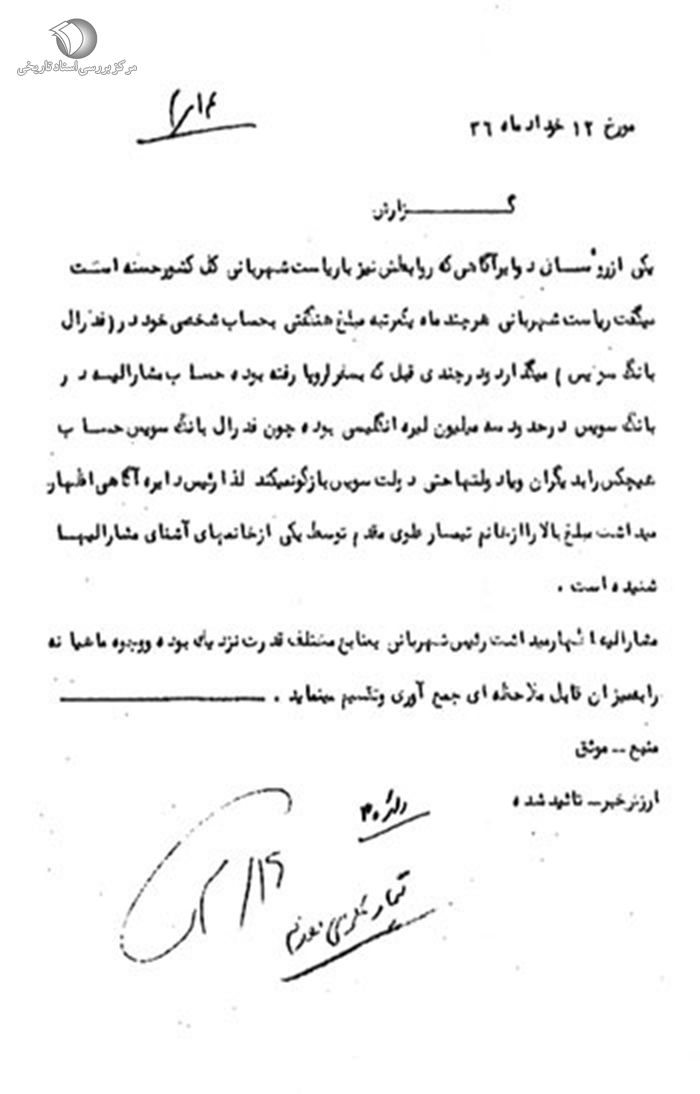 مرکز بررسی اسناد تاریخی
مورخ ۱۲ خرداد ماه ۳۶
گزارش
یکی از روُسای دوایر آگاهی که روابطش نیز با ریاست شهربانی کل کشور حسنه است
میگفت ریاست شهربانی هر چند ماه یکمرتبه مبلغ هنگفتی بحساب شخصی خود در (فدرال
بانک سویس) میگذارد و در چندی قبل که بسفر اروپا رفته بوده حساب مشارالیه در
بانک سویس در حدود سه میلیون لیره انگلیسی بوده چون فدرال بانک سویس حساب
هیچکس را بدیگران و یا دولتها حتی دولت سویس بازگو نمیکند لذا رئیس دایره آگاهی اظهار
میداشت مبلغ بالا را از خانم تیمسار علوی مقدم توسط یکی از خانمهای آشنای مشارالیها
شنیده است .
مشارالیه اظهار میداشت رئیس شهربانی بمنابع مختلف قدرت نزدیک بوده و وجوه ماهیانه
را بمیزان قابل ملاحظه ای جمع آوری و تقسیم مینماید .
منبع ــ موثق
ارزش خبر ــ تائید شده